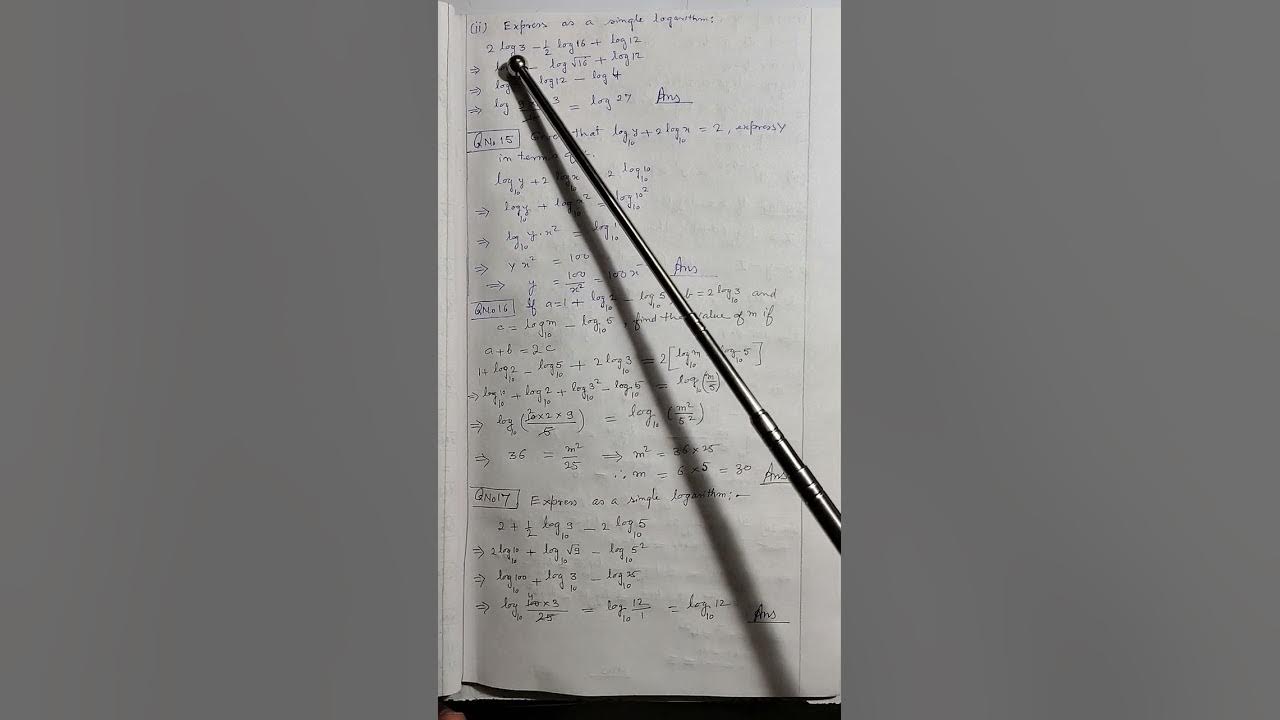 (ii) Express as a single logarithm:
2 log 3 - 1/2 log 16 + log 12
⇒ log - log √16 + log 12
⇒ log log 12 - log 4
⇒ log 3 = log 27 Ans
Q No 15 that log₁₀ y + 2 log₁₀ x = 2, express y
in terms of
log₁₀ y + 2 log₁₀ x 2 log₁₀ 10
⇒ log₁₀ y + log₁₀ x² = log₁₀ 10²
⇒ log₁₀ y · x² = log₁₀
⇒ y x² = 100
⇒ y = 100/x² = 100 x⁻ Ans
Q No 16 If a = 1 + log₁₀ 2 - log₁₀ 5, b = 2 log₁₀ 3 and
c = log₁₀ m - log₁₀ 5, find the value of m if
a + b = 2c
1 + log₁₀ 2 - log₁₀ 5 + 2 log₁₀ 3 = 2 [log₁₀ m log₁₀ 5]
⇒ log₁₀ 10 + log₁₀ 2 + log₁₀ 3² - log₁₀ 5 = log₁₀ (m/5)
⇒ log₁₀ (10 × 2 × 9 / 5) = log₁₀ (m²/5²)
⇒ 36 = m²/25 ⇒ m² = 36 × 25
∴ m = 6 × 5 = 30 Ans
Q No 17 Express as a single logarithm:-
2 + 1/2 log₁₀ 3 - 2 log₁₀ 5
⇒ 2 log₁₀ 10 + log₁₀ √9 - log₁₀ 5²
⇒ log₁₀ 100 + log₁₀ 3 - log₁₀ 25
⇒ log₁₀ 100 × 3 / 25 = log₁₀ 12/1 = log₁₀ 12 Ans